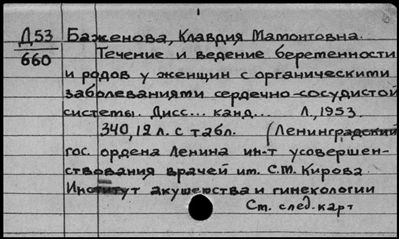 Д53 Баженова, Клавдия Мамонтовна.
660 Течение и ведение беретенности
и родов у женщин с органическими
заболеваниями сердечно-сосудистой
системы. Дисс... канд... Л., 1953.
340, 12 л. с табл. (Ленинградский
гос. ордена Ленина ин-т усовершен-
ствования врачей им. С.М. Кирова.
Институт акушерства и гинекологии
См. след. карт